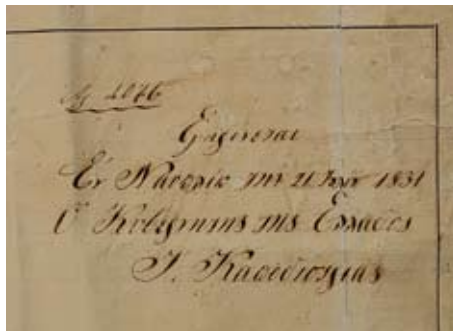 2076
Εγκρίνεται
Εν Ναυπλίω τη 21 1831
Ο Κυβερνήτης της Ελλάδος
Ι. Καποδίστριας